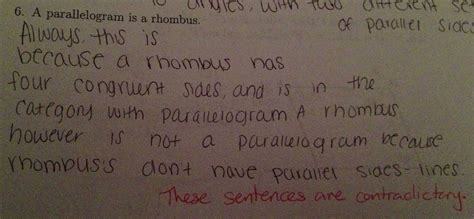 angles, with two different se
6. A parallelogram is a rhombus.
of parallel sides
Always, this is
because a rhombus has
four congruent sides, and is in the
category with parallelogram. A rhombus
however is not a parallelogram because
rhombus's don't have parallel sides-lines.
These sentences are contradictory.